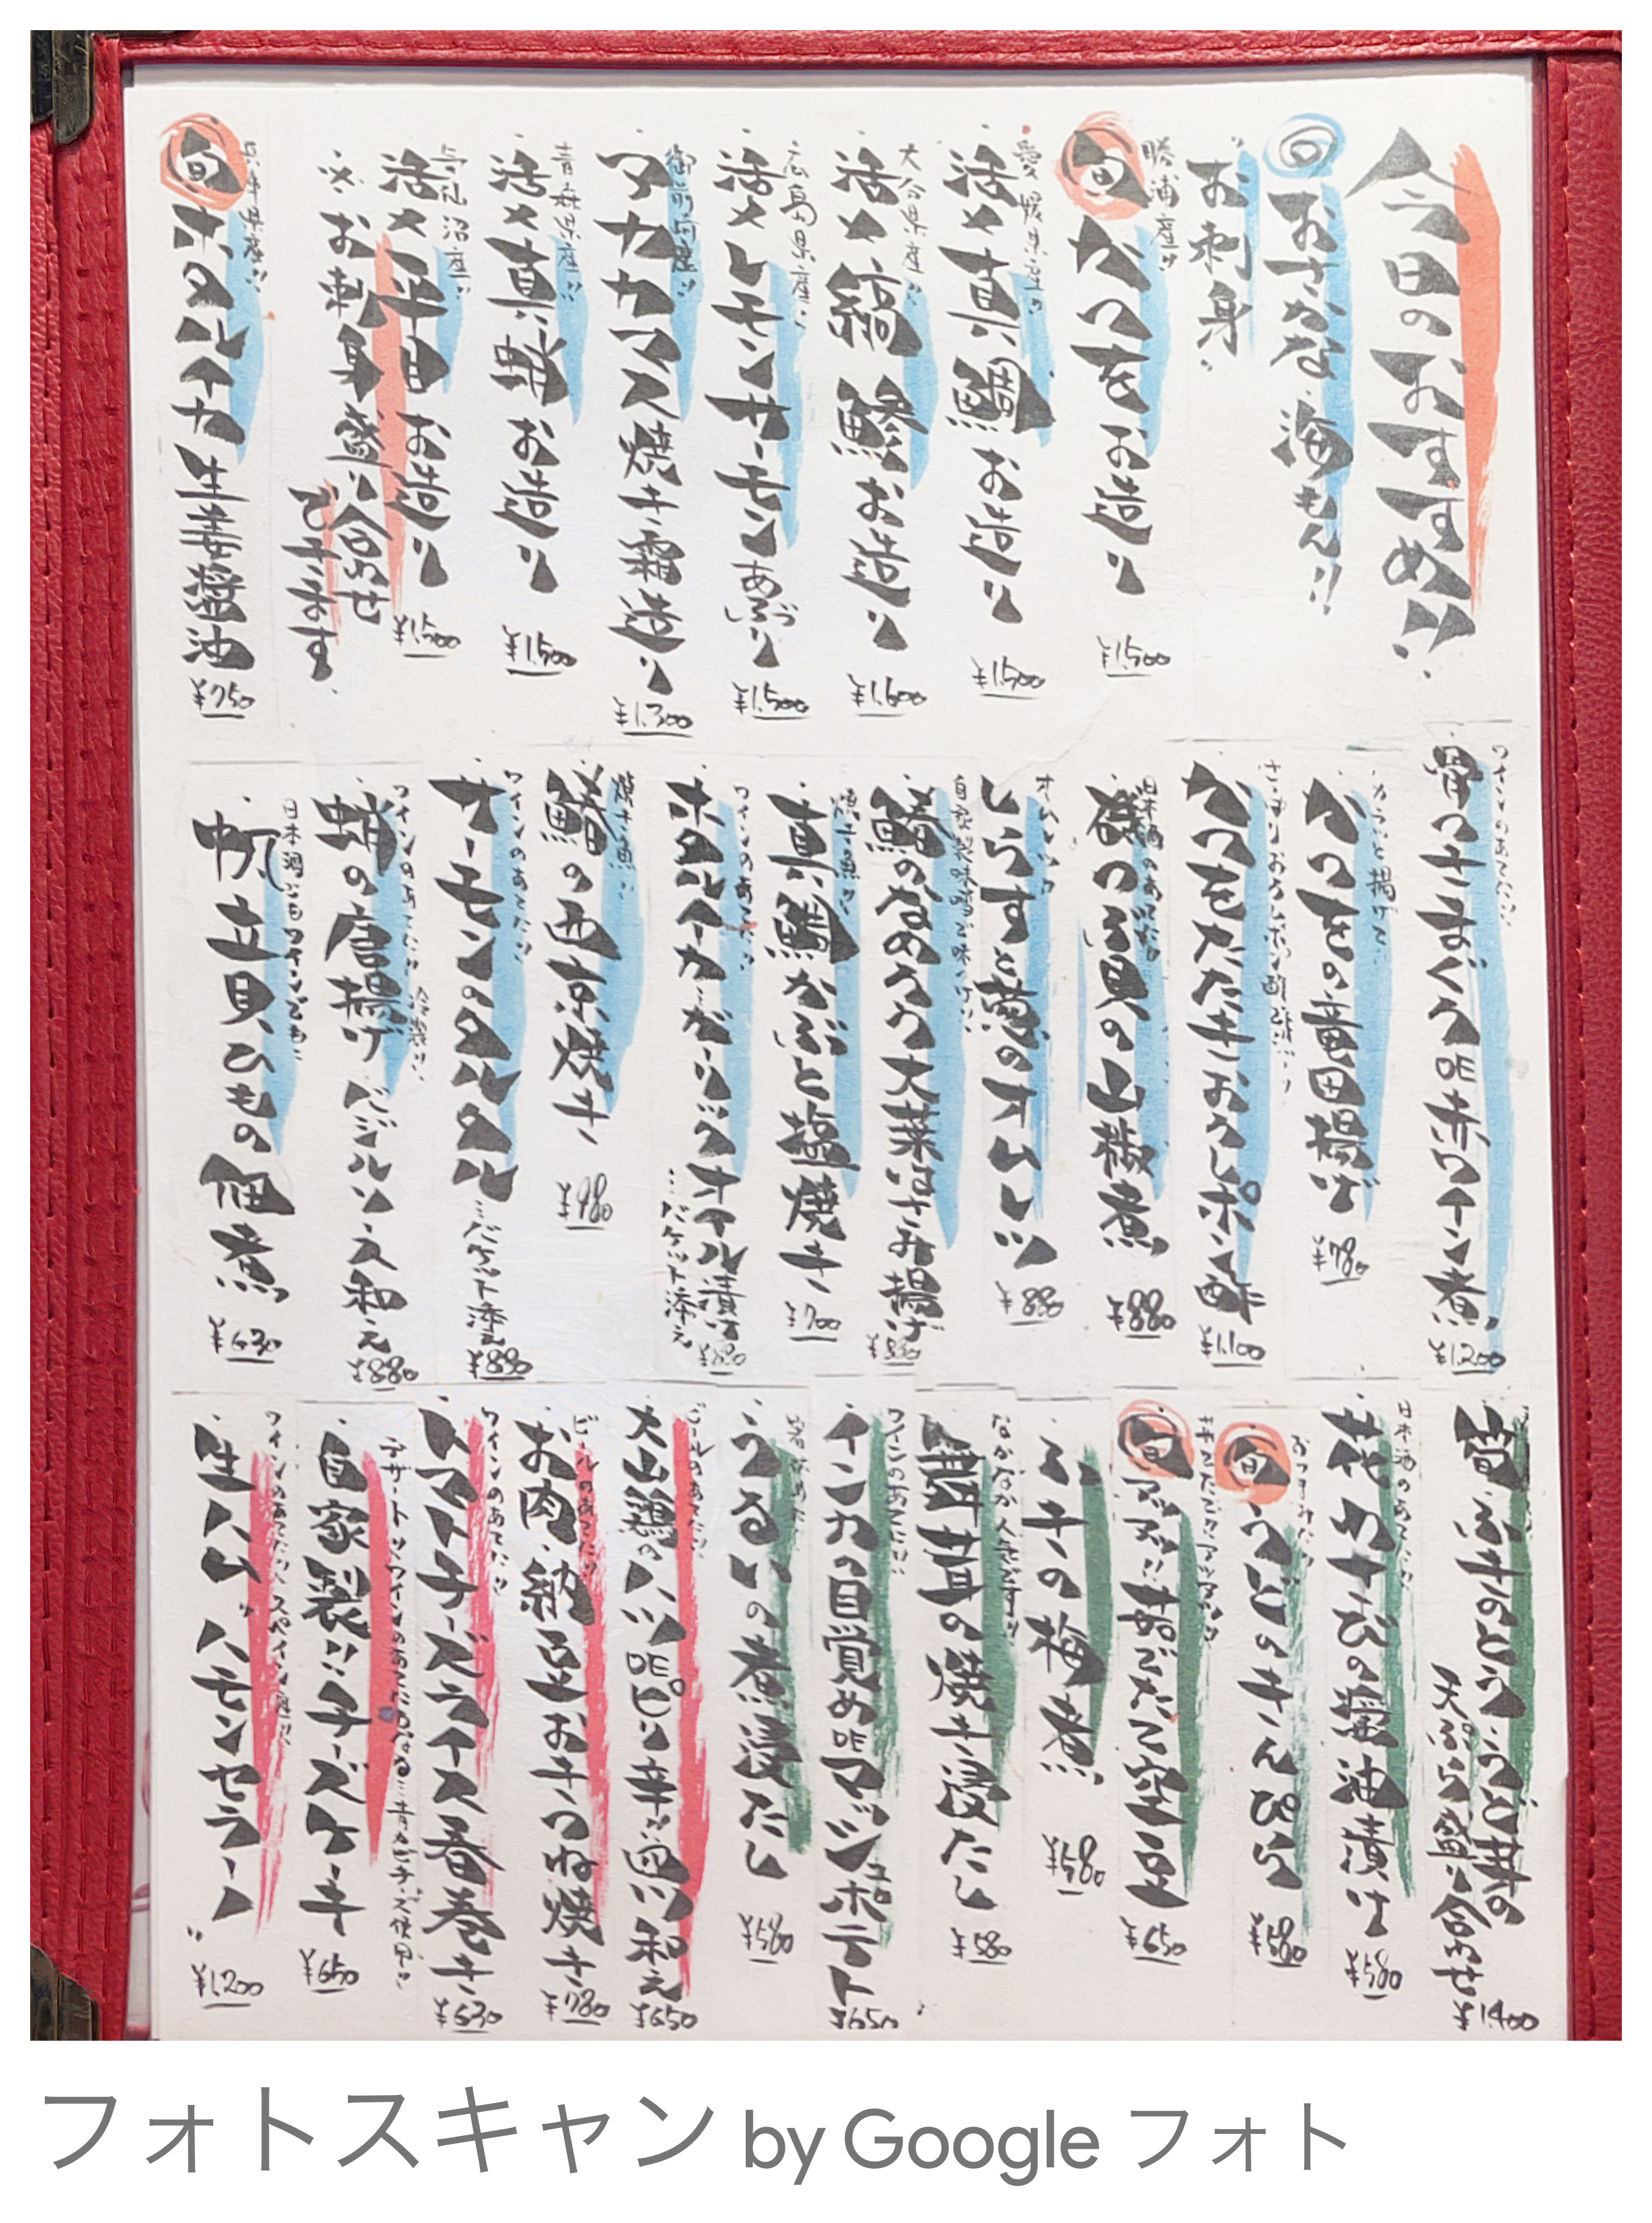 今日のおすすめ!!
◎おさかな、海もん!!
お刺身
勝浦産!!
旬 かつを お造り ¥1,500
愛媛県産!!
・活〆真鯛 お造り ¥1,500
大分県産!!
・活〆縞鯵 お造り ¥1,600
広島県産!!
・活〆レモンサーモン あぶり ¥1,500
御前崎産!!
・アカカマス 焼き霜造り ¥1,300
青森県産!!
・活〆真蛸 お造り ¥1,500
気仙沼産!!
・活〆平目 お造り ¥1,500
※お刺身盛り合わせ
できます。
兵庫県産!!
旬 ホタルイカ 生姜醤油 ¥750
ワインのあてに!!
・骨つきまぐろ DE 赤ワイン煮 ¥1,200
・かつをの竜田揚げ ¥780
・かつをたたき おろしポン酢 ¥1,100
日本酒のあてに!!
・磯つぶ貝の山椒煮 ¥880
オムレツ!!
・しらすと葱のオムレツ ¥880
自家製味噌で味つけ!!
・鯵のなめろう大葉はさみ揚げ ¥880
焼き魚!!
・真鯛かぶと塩焼き ¥700
ワインのあてに!!
・ホタルイカ ガーリックオイル漬け ¥880
…バケット添え
焼き魚!!
・鰆の西京焼き ¥980
ワインのあてに!!
・サーモンのタルタル …バケット添え ¥880
ワインのあてに!! 冷製!!
・蛸の唐揚げ バジルソース和え ¥880
日本酒にもワインにも!!
・帆立貝ひもの佃煮 ¥630
・筍、ふきのとう、うど芽の
天ぷら盛り合わせ ¥1,400
日本酒のあてに!!
・花わさびの醤油漬け ¥580
おつまみに!!
旬 うどのきんぴら ¥580
旬 アツアツ!! 茹でたて空豆 ¥650
・ふきの梅煮 ¥580
なかなか人気です!!
・舞茸の焼き浸たし ¥580
ワインのあてに!!
・インカの目覚め DE マッシュポテト ¥650
・うるいの煮浸だし ¥580
ビールのあてに!!
・大山鶏のハツ DE ピリ辛!! 和え ¥650
ビールのあてに!!
・お肉、納豆おきつね焼き ¥780
ワインのあてに!!
・トマトチーズライス春巻き ¥630
デザート!! ワインのあてにもなる…青カビチーズ使用!!
・自家製!! チーズケーキ ¥650
ワインのあてに!! スペイン産!!
・生ハム "ハモンセラーノ" ¥1,200
フォトスキャン by Google フォト